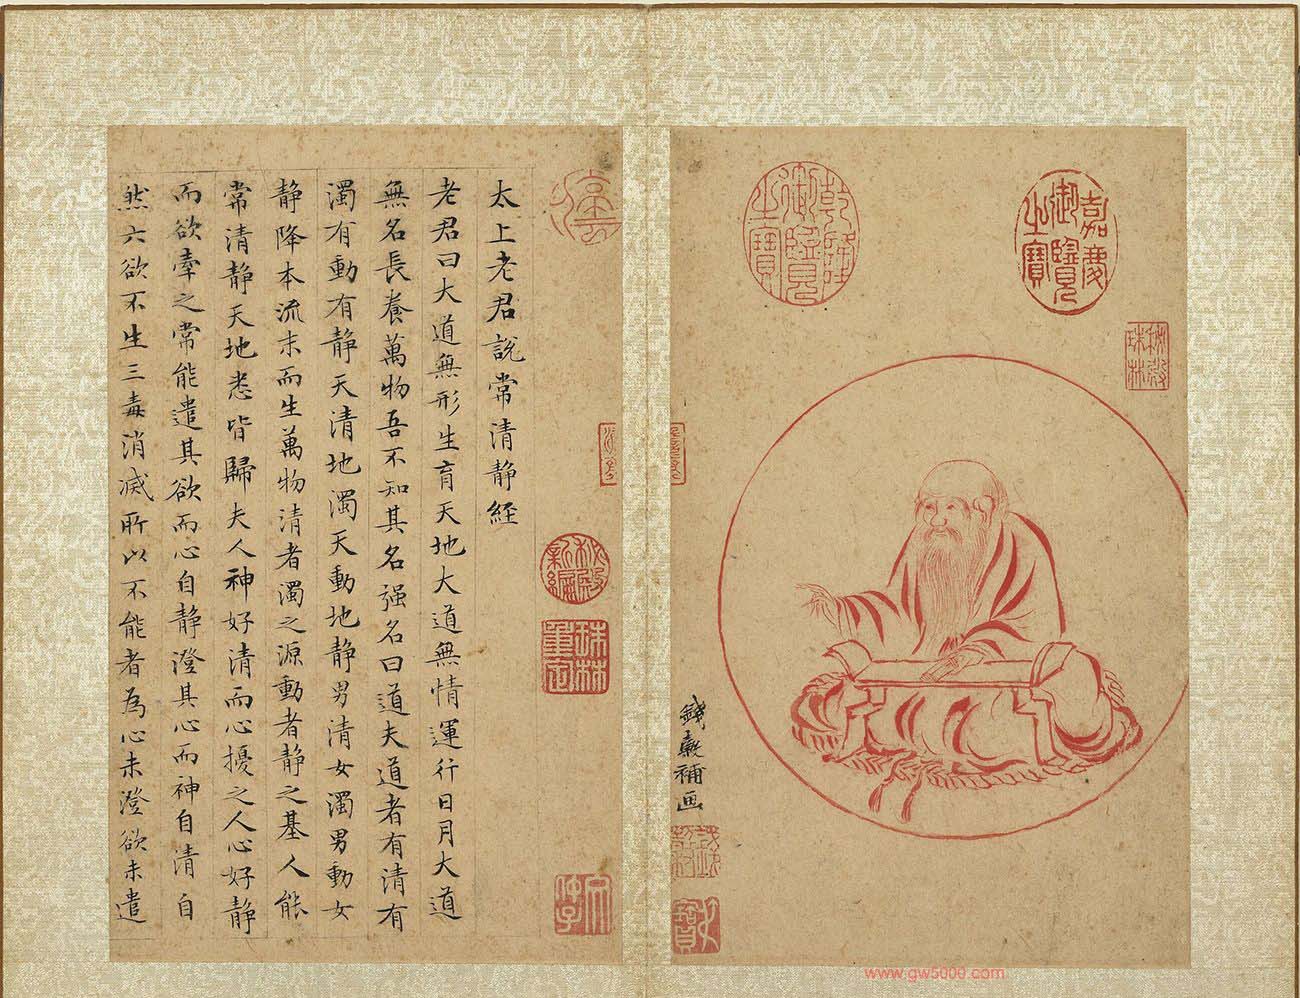 嘉慶御覽之寶
乾隆御覽之寶
秘殿珠林
錢穀補画
秘殿新編
珠林重定
太上老君說常清静經
老君曰大道無形生育天地大道無情運行日月大道
無名長養萬物吾不知其名强名曰道夫道者有清有
濁有動有静天清地濁天動地静男清女濁男動女
静降本流末而生萬物清者濁之源動者静之基人能
常清静天地悉皆歸夫人神好清而心擾之人心好静
而欲牽之常能遣其欲而心自静澄其心而神自清自
然六欲不生三毒消滅所以不能者為心未澄欲未遣
www.gw5000.com